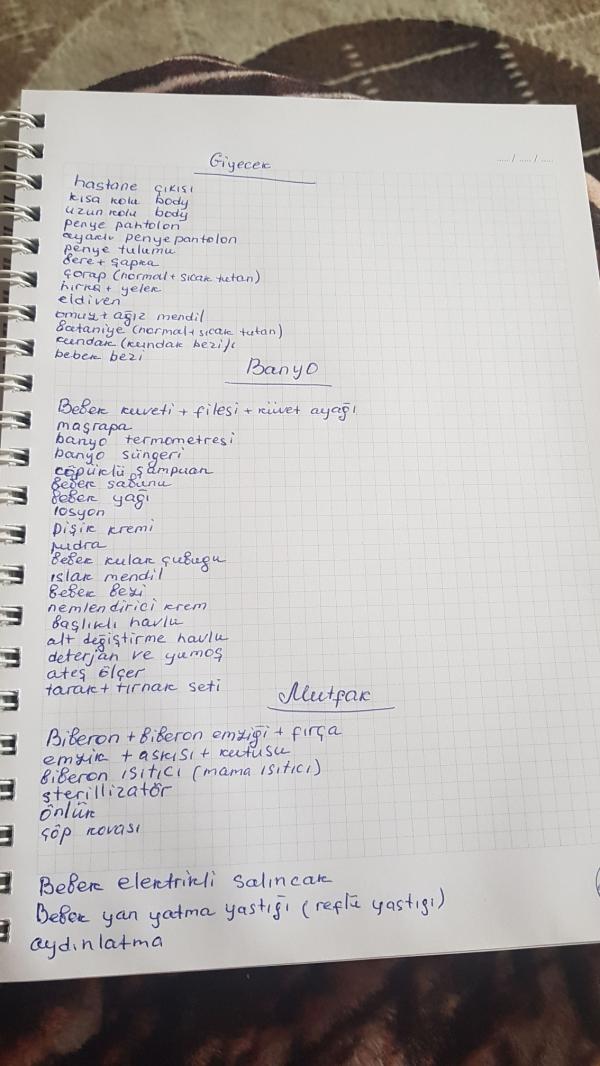 ..... / ..... / .....
Giyecek
hastane çıkışı
kısa kolu body
uzun kolu body
penye pantolon
ayaklı penye pantolon
penye tulumu
bere + şapka
çorap (normal + sıcak tutan)
hırka + yelek
eldiven
omuz + ağız mendil
Bataniye (normal + sıcak tutan)
cundak (kundak bezi)
bebek bezi
Banyo
Bebek kuveti + filesi + küvet ayağı
maşrapa
banyo termometresi
banyo süngeri
cöpüklü şampuan
Bebek sabunu
Bebek yağı
losyon
pişik kremi
pudra
Bebek kulak çubugu
ıslak mendil
Bebek Bezi
nemlendirici krem
başlıklı havlu
alt değiştirme havlu
deterjan ve yumoş
ateş ölçer
tarak + tırnak seti
Mutfak
Biberon + Biberon emziği + fırça
emzik + askısı + kutusu
Biberon ısıtıcı (mama ısıtıcı)
sterillizatör
önlük
çöp kovası
Bebek elektrikli salıncak
Bebek yan yatma yastığı (reflü yastığı)
aydınlatma